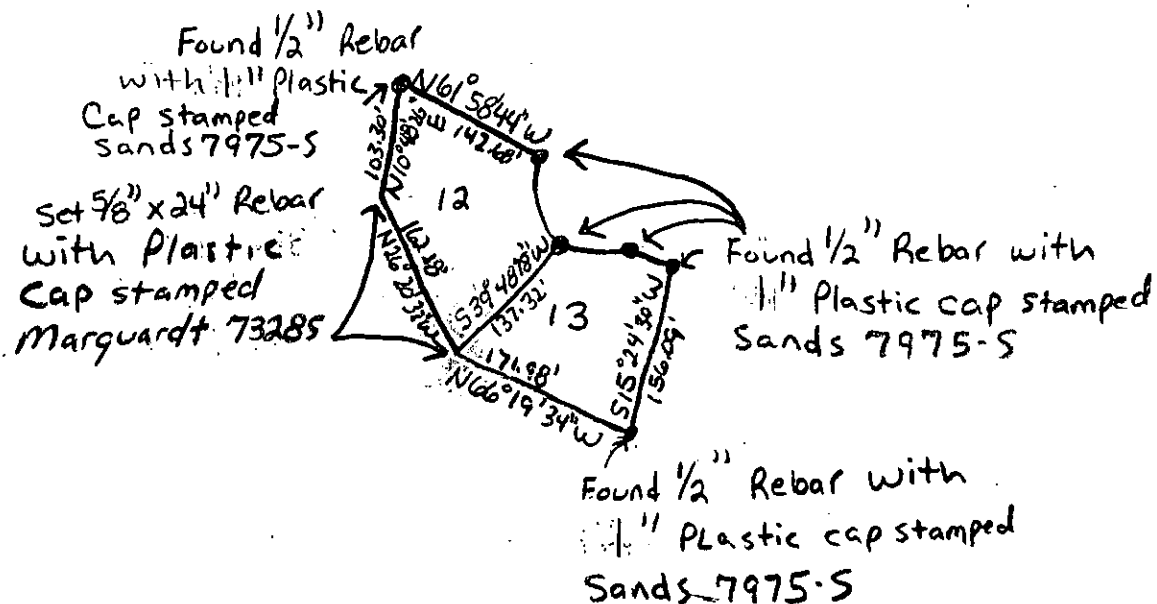 Found 1/2" Rebar
with 1" Plastic
Cap stamped
Sands 7975-S
Set 5/8" x 24" Rebar
with Plastic
Cap stamped
Marquardt 7328S
N61°58'44"W
142.68'
103.30'
N10°48'26"E
12
162.18'
N26°20'33"W
S39°48'28"W
137.32'
13
171.98'
N66°19'34"W
S15°24'30"W
156.09'
Found 1/2" Rebar with
1" Plastic cap stamped
Sands 7975-S
Found 1/2" Rebar with
1" Plastic cap stamped
Sands 7975-S